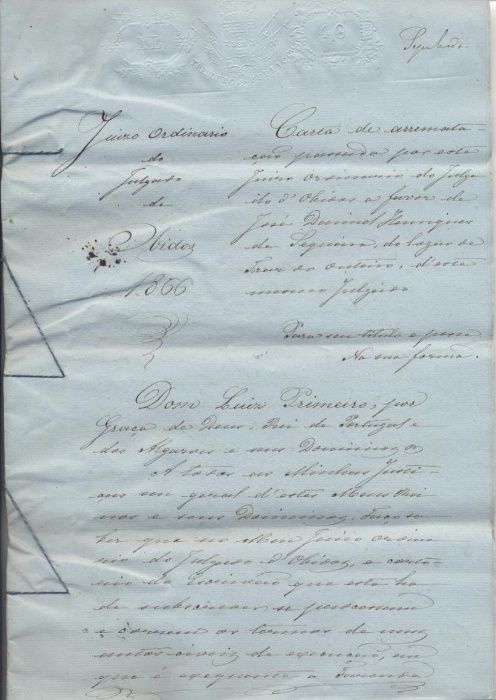 40
Juizo Ordinario
do
Julgado
de
Obidos
1866
Carta de arremata-
ção passada por este
Juizo ordinario do Julga-
do d'Obidos a favor de
José Daniel Henriques
de Sequeira, do lugar de
outeiro, d'este
mesmo Julgado
Para seu titulo e posse
Na sua forma.
Dom Luiz Primeiro, por
Graça de Deus, Rei de Portugal e
dos Algarves e seus Dominios &
A todas as Minhas Justi-
ças em geral d'estes Meus Rei-
nos e seus Dominios, Faço sa-
ber que no Meu Juizo ordina-
rio do Julgado d'Obidos, e carto-
rio do Escrivão que esta ha
de subscrever se processam
e correm os termos de uns
autos civeis de execução, em
que é exequente a Fazenda